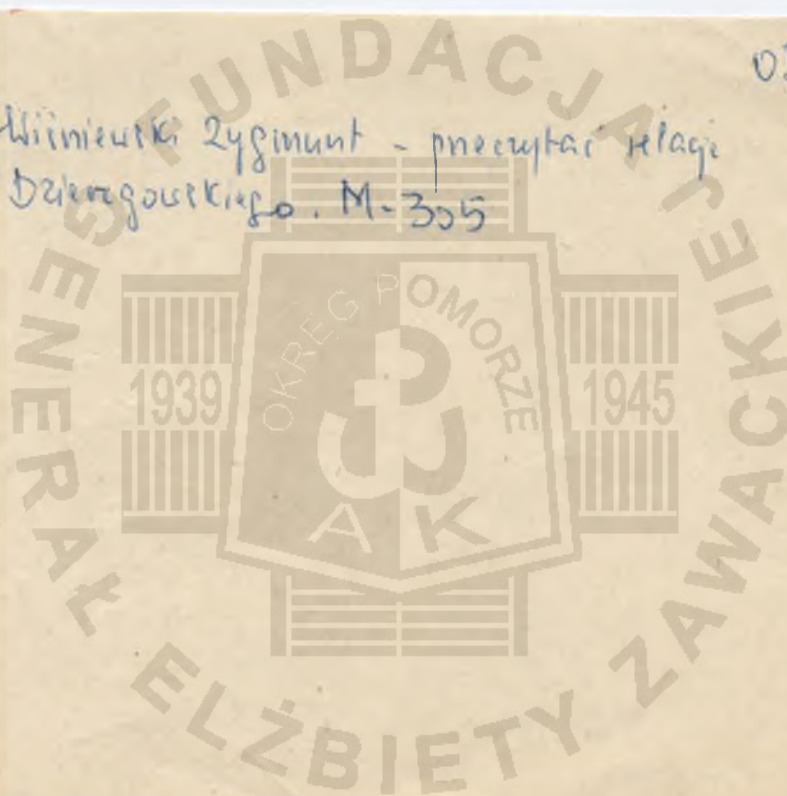 03
Wiśniewski Zygmunt - przeczytać relację
Dzierzgowskiego. M-305
FUNDACJA JEJ
GENERAŁ ELŻBIETY ZAWACKIEJ
OKRĘG POMORZE
1939
1945
AK